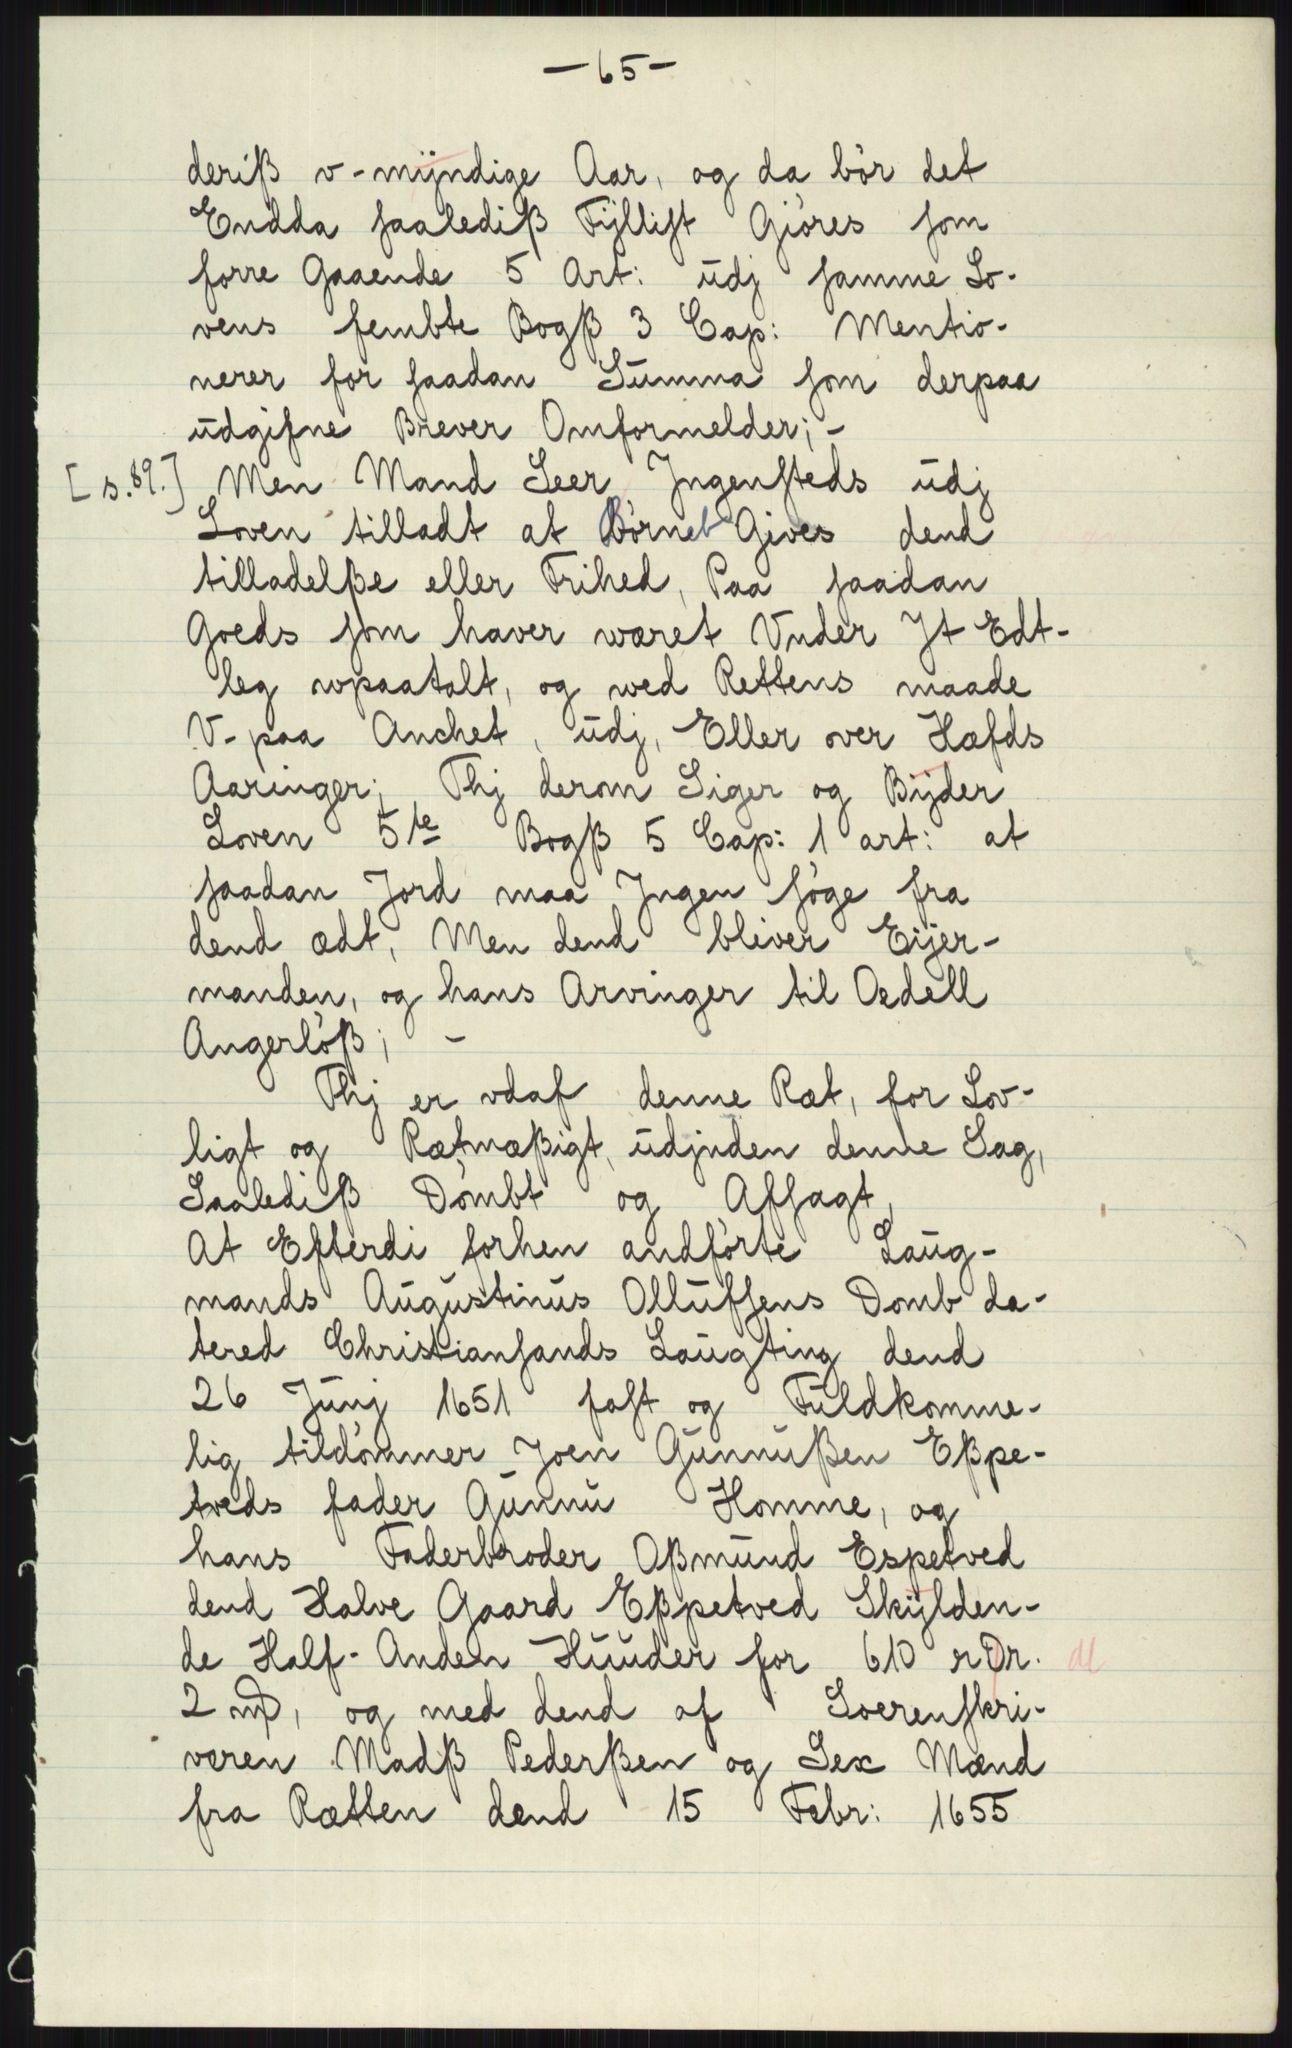 — 65 —
deriß v-mÿndige Aar, og da bør det
Endda saalediß Fÿllist Giøres som
forre Gaaende 5 Art: udj samme Lo-
vens fembte Bogß 3 Cap: Mentio-
nerer for saadan Summa som derpaa
udgifne Brever Omformelder; -
[s.89.] Men Mand Seer Jngensteds udj
Loven tilladt at Børnet Gives dend
tilladelße eller Frihed, Paa saadan
Goeds som haver wæret Vnder Jt Edt-
leg wpaatalt, og wed Rettens maade
V-paa Anchet, udj, Eller over Hæfds
Aaringer; Thj derom Siger og Bÿder
Loven 5te Bogß 5 Cap: 1 art: at
saadan Jord maa Jngen søge fra
dend ædt, Men dend bliver Eÿer-
manden, og hans Arvinger til Oedell
Angerløß; -
Thj er vdaf denne Ræt, for Lov-
ligt og Rætmæßigt, udjnden denne Sag,
Saalediß Dømbt og Afsagt,
At Efterdi forhen andførte Laug-
mands Augustinus Ollufsens Domb da-
tered Christiansands Laugting dend
26 Junj 1651 fast og Fuldkomme-
lig tildømmer Joen Gunnußen Eßpe-
tveds fader Gunnu Homme, og
hans Faderbroder Aßmund Espetved
dend Halve Gaard Eßpetved Skÿlden-
de Half-Anden Huuder for 610 rDr. dl
2 mþ, og med dend af Soerenskri-
veren Madß Pederßen og Sex Mænd
fra Rætten dend 15 Febr: 1655